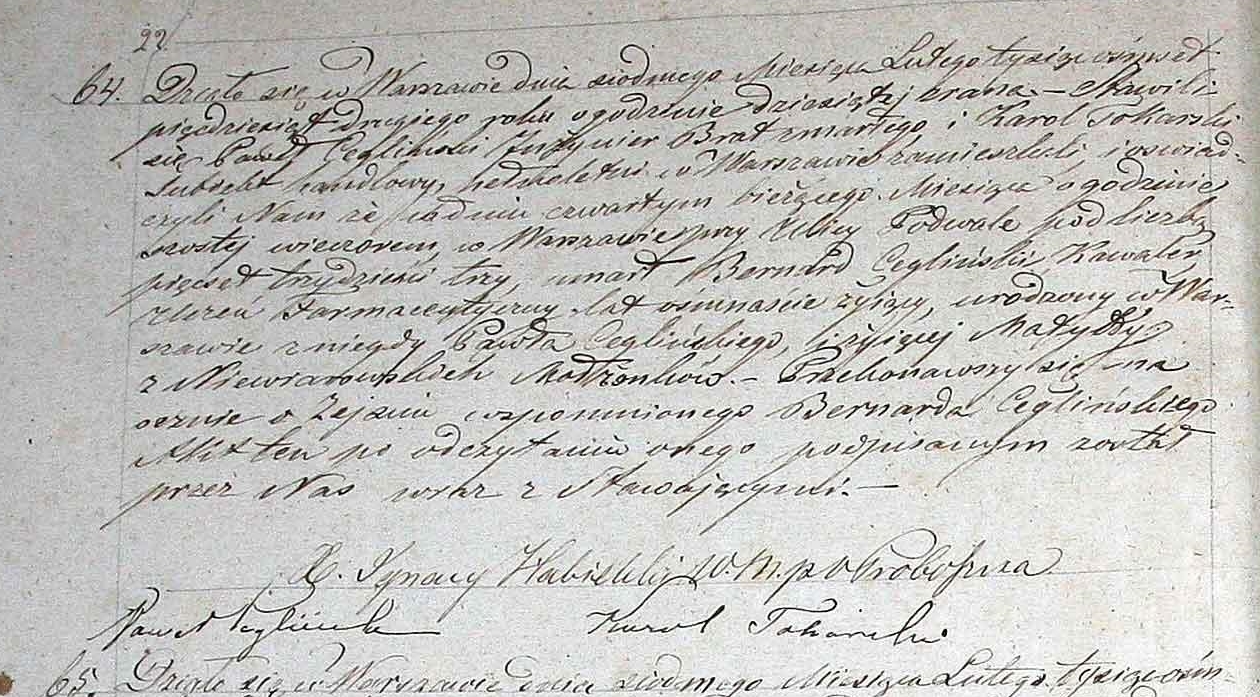 22.
64. Działo się w Warszawie dnia siodmego Miesiąca Lutego tysiąc ośmset
pięcdziesiąt drugiego roku o godzinie dziesiątej z rana. – Stawili
się Paweł Cegliński Inżynier Brat zmarłego, i Karol Tokarski
Subiekt handlowy, pełnoletni w Warszawie zamieszkali, i oswiad-
czyli Nam że w dniu czwartym bieżącego Miesiąca o godzinie
szostej wieczorem, w Warszawie przy Ulicy Podwale pod liczbą
pięcset trzydzieści trzy, umarł Bernard Cegliński Kawaler
Uczeń Farmaceutyczny lat ośmnaście żyjący, urodzony w War-
szawie z niegdy Pawła Ceglińskiego, i żyjącej Matyldy
z Niewiarowskich Małżonków. – Przekonawszy się na
ocznie o Zejściu wspomnionego Bernarda Ceglińskiego
Akt ten po odczytaniu onego podpisanym został
przez Nas wraz z Stawającymi. –
X. Ignacy W. M. p o Proboszcza
Paweł Cegliński Karol Tokarski
65. Działo się w Warszawie dnia siodmego Miesiąca Lutego tysiąc ośm-